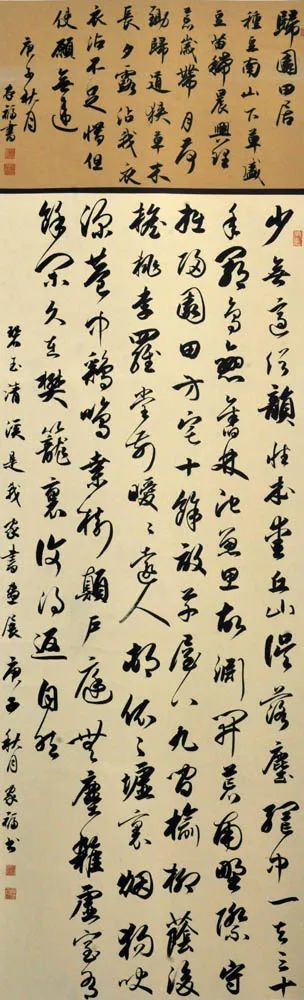 歸園田居
種豆南山下草盛
豆苗稀晨興理
荒穢帶月荷
鋤歸道狹草木
長夕露沾我衣
衣沾不足惜但
使願無違
庚子秋月
家福書
少無適俗韻性本愛丘山誤落塵網中一去三十
年羈鳥戀舊林池魚思故淵開荒南野際守
拙歸園田方宅十餘畝草屋八九間榆柳蔭後
檐桃李羅堂前曖〻遠人村依〻墟裏烟狗吠
深巷中鷄鳴桑樹顛戶庭無塵雜虛室有
餘閑久在樊籠裏復得返自然
碧玉清溪是我家書畫展 庚子秋月家福書